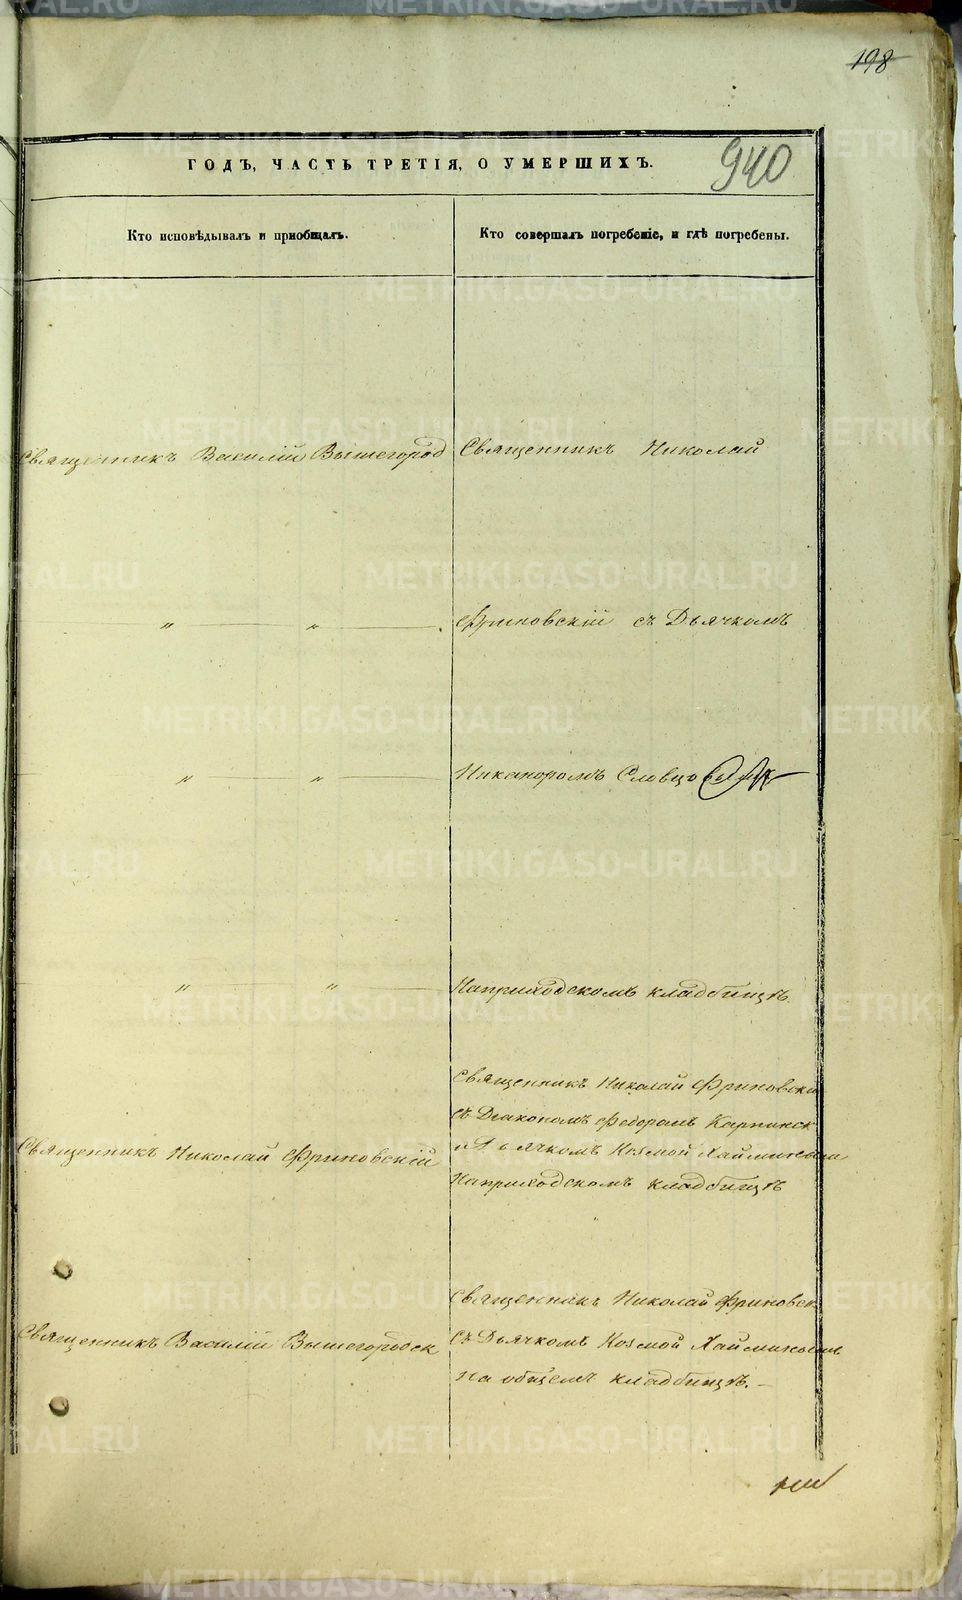 198
940
ГОДЪ, ЧАСТЬ ТРЕТІЯ, О УМЕРШИХЪ.
Кто исповѣдывалъ и пріобщалъ.
Кто совершалъ погребеніе, и гдѣ погребены.
Священникъ Василій Вышегород
Священникъ Николай
〃 〃
Фриновскій съ Дьячкомъ
〃 〃
Никаноромъ Словцо
〃 〃
Наприходскомъ кладбищѣ.
Священникъ Николай Фриновскій
Священникъ Николай Фриновски
съ Діакономъ Федоромъ Карпинск
и Дьячкомъ Козмой
Наприходскомъ кладбищѣ
Священникъ Василій Вышегородск
Священникъ Николай Фриновск
съ Дьячкомъ Козмой
на общемъ кладбищѣ.
METRIKI.GASO-URAL.RU